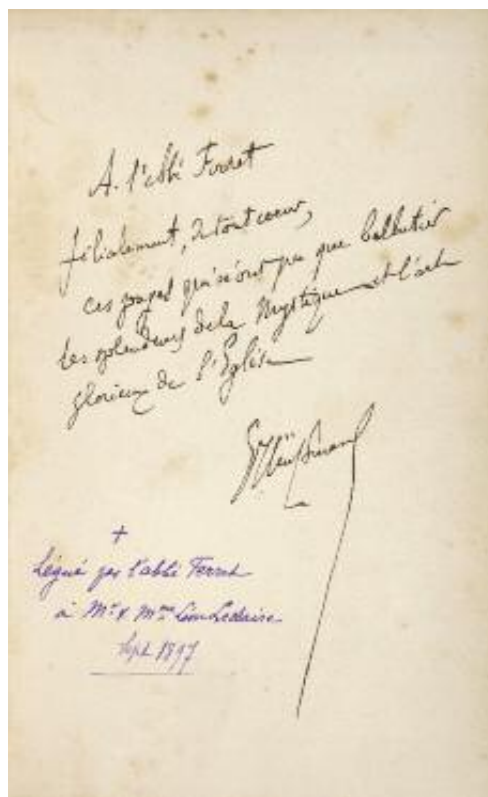 A. l'abbé Ferret
filialement, de tout coeur,
ces pages qui n'ont pu que balbutier
les splendeurs de la Mystique et l'art
glorieux de l'Eglise
GHuÿsmans
+
Légué par l'abbé Ferret
à Mr & Mme Léon Leclaire
Sept 1897